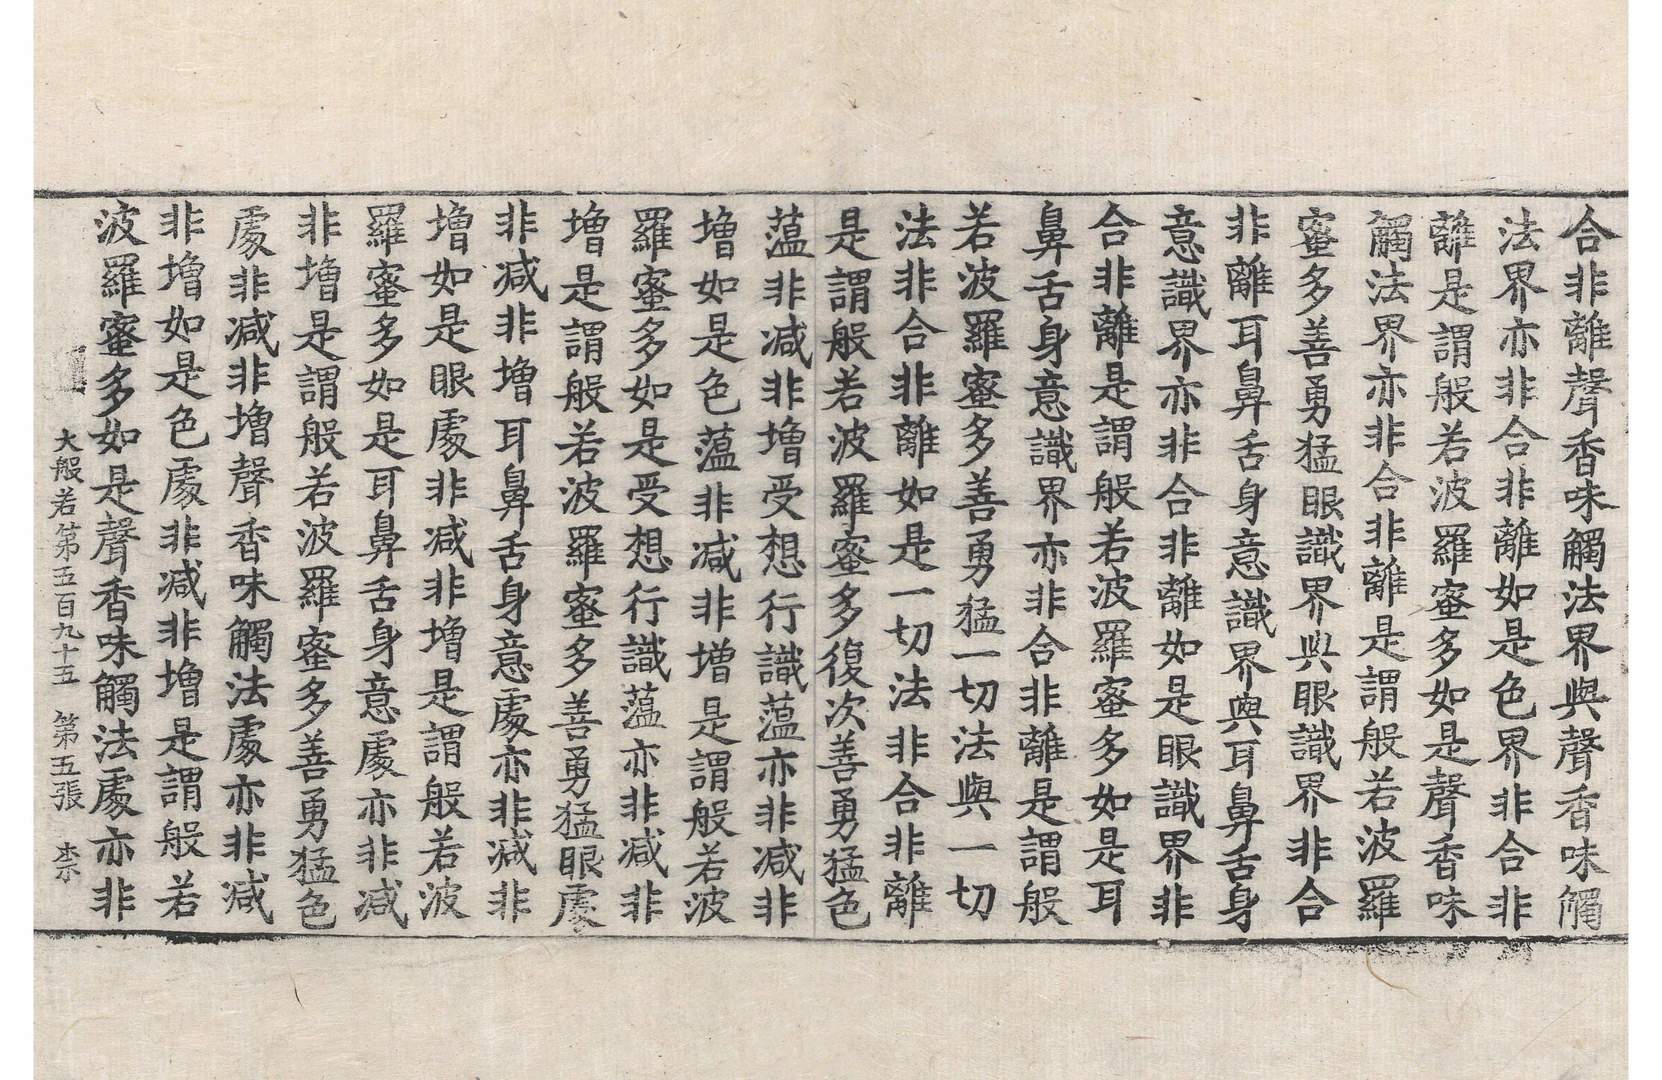 合非離聲香味觸法界與聲香味觸
法界亦非合非離如是色界非合非
離是謂般若波羅蜜多如是聲香味
觸法界亦非合非離是謂般若波羅
蜜多善勇猛眼識界與眼識界非合
非離耳鼻舌身意識界與耳鼻舌身
意識界亦非合非離如是眼識界非
合非離是謂般若波羅蜜多如是耳
鼻舌身意識界亦非合非離是謂般
若波羅蜜多善勇猛一切法與一切
法非合非離如是一切法非合非離
是謂般若波羅蜜多復次善勇猛色
薀非减非增受想行識薀亦非减非
增如是色薀非减非增是謂般若波
羅蜜多如是受想行識薀亦非减非
增是謂般若波羅蜜多善勇猛眼處
非减非增耳鼻舌身意處亦非减非
增如是眼處非减非增是謂般若波
羅蜜多如是耳鼻舌身意處亦非减
非增是謂般若波羅蜜多善勇猛色
處非减非增聲香味觸法處亦非减
非增如是色處非减非增是謂般若
波羅蜜多如是聲香味觸法處亦非
大般若第五百九十五 第五張 柰